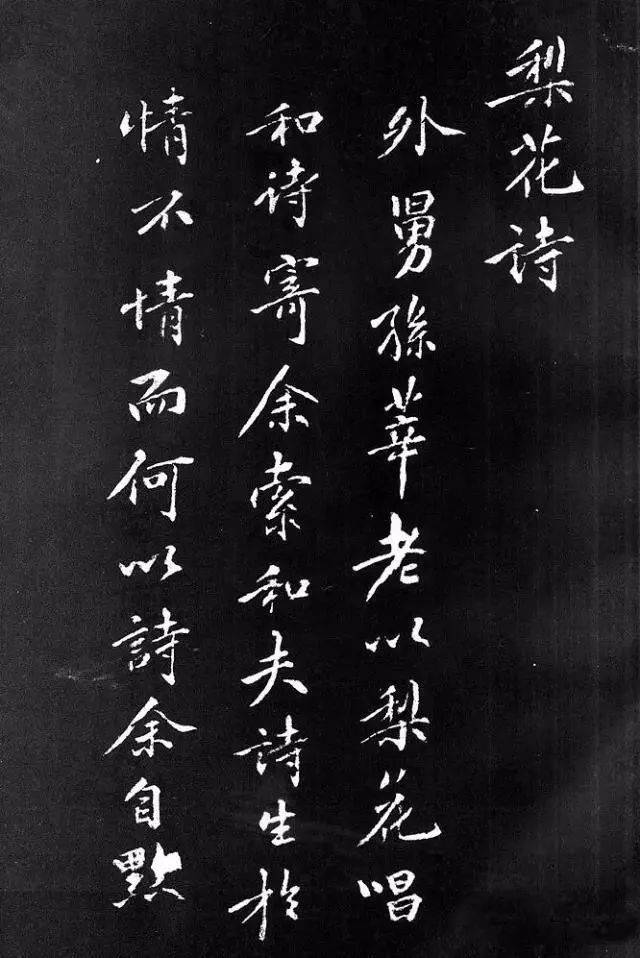 梨花詩
外舅孫莘老以梨花唱
和詩寄余索和夫詩生於
情不情而何以詩余自黔